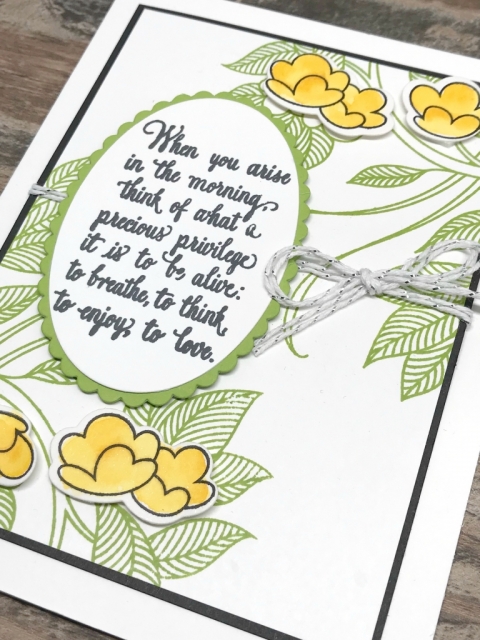 When you arise
in the morning,
think of what a
precious privilege
it is to be alive:
to breathe, to think,
to enjoy, to love.